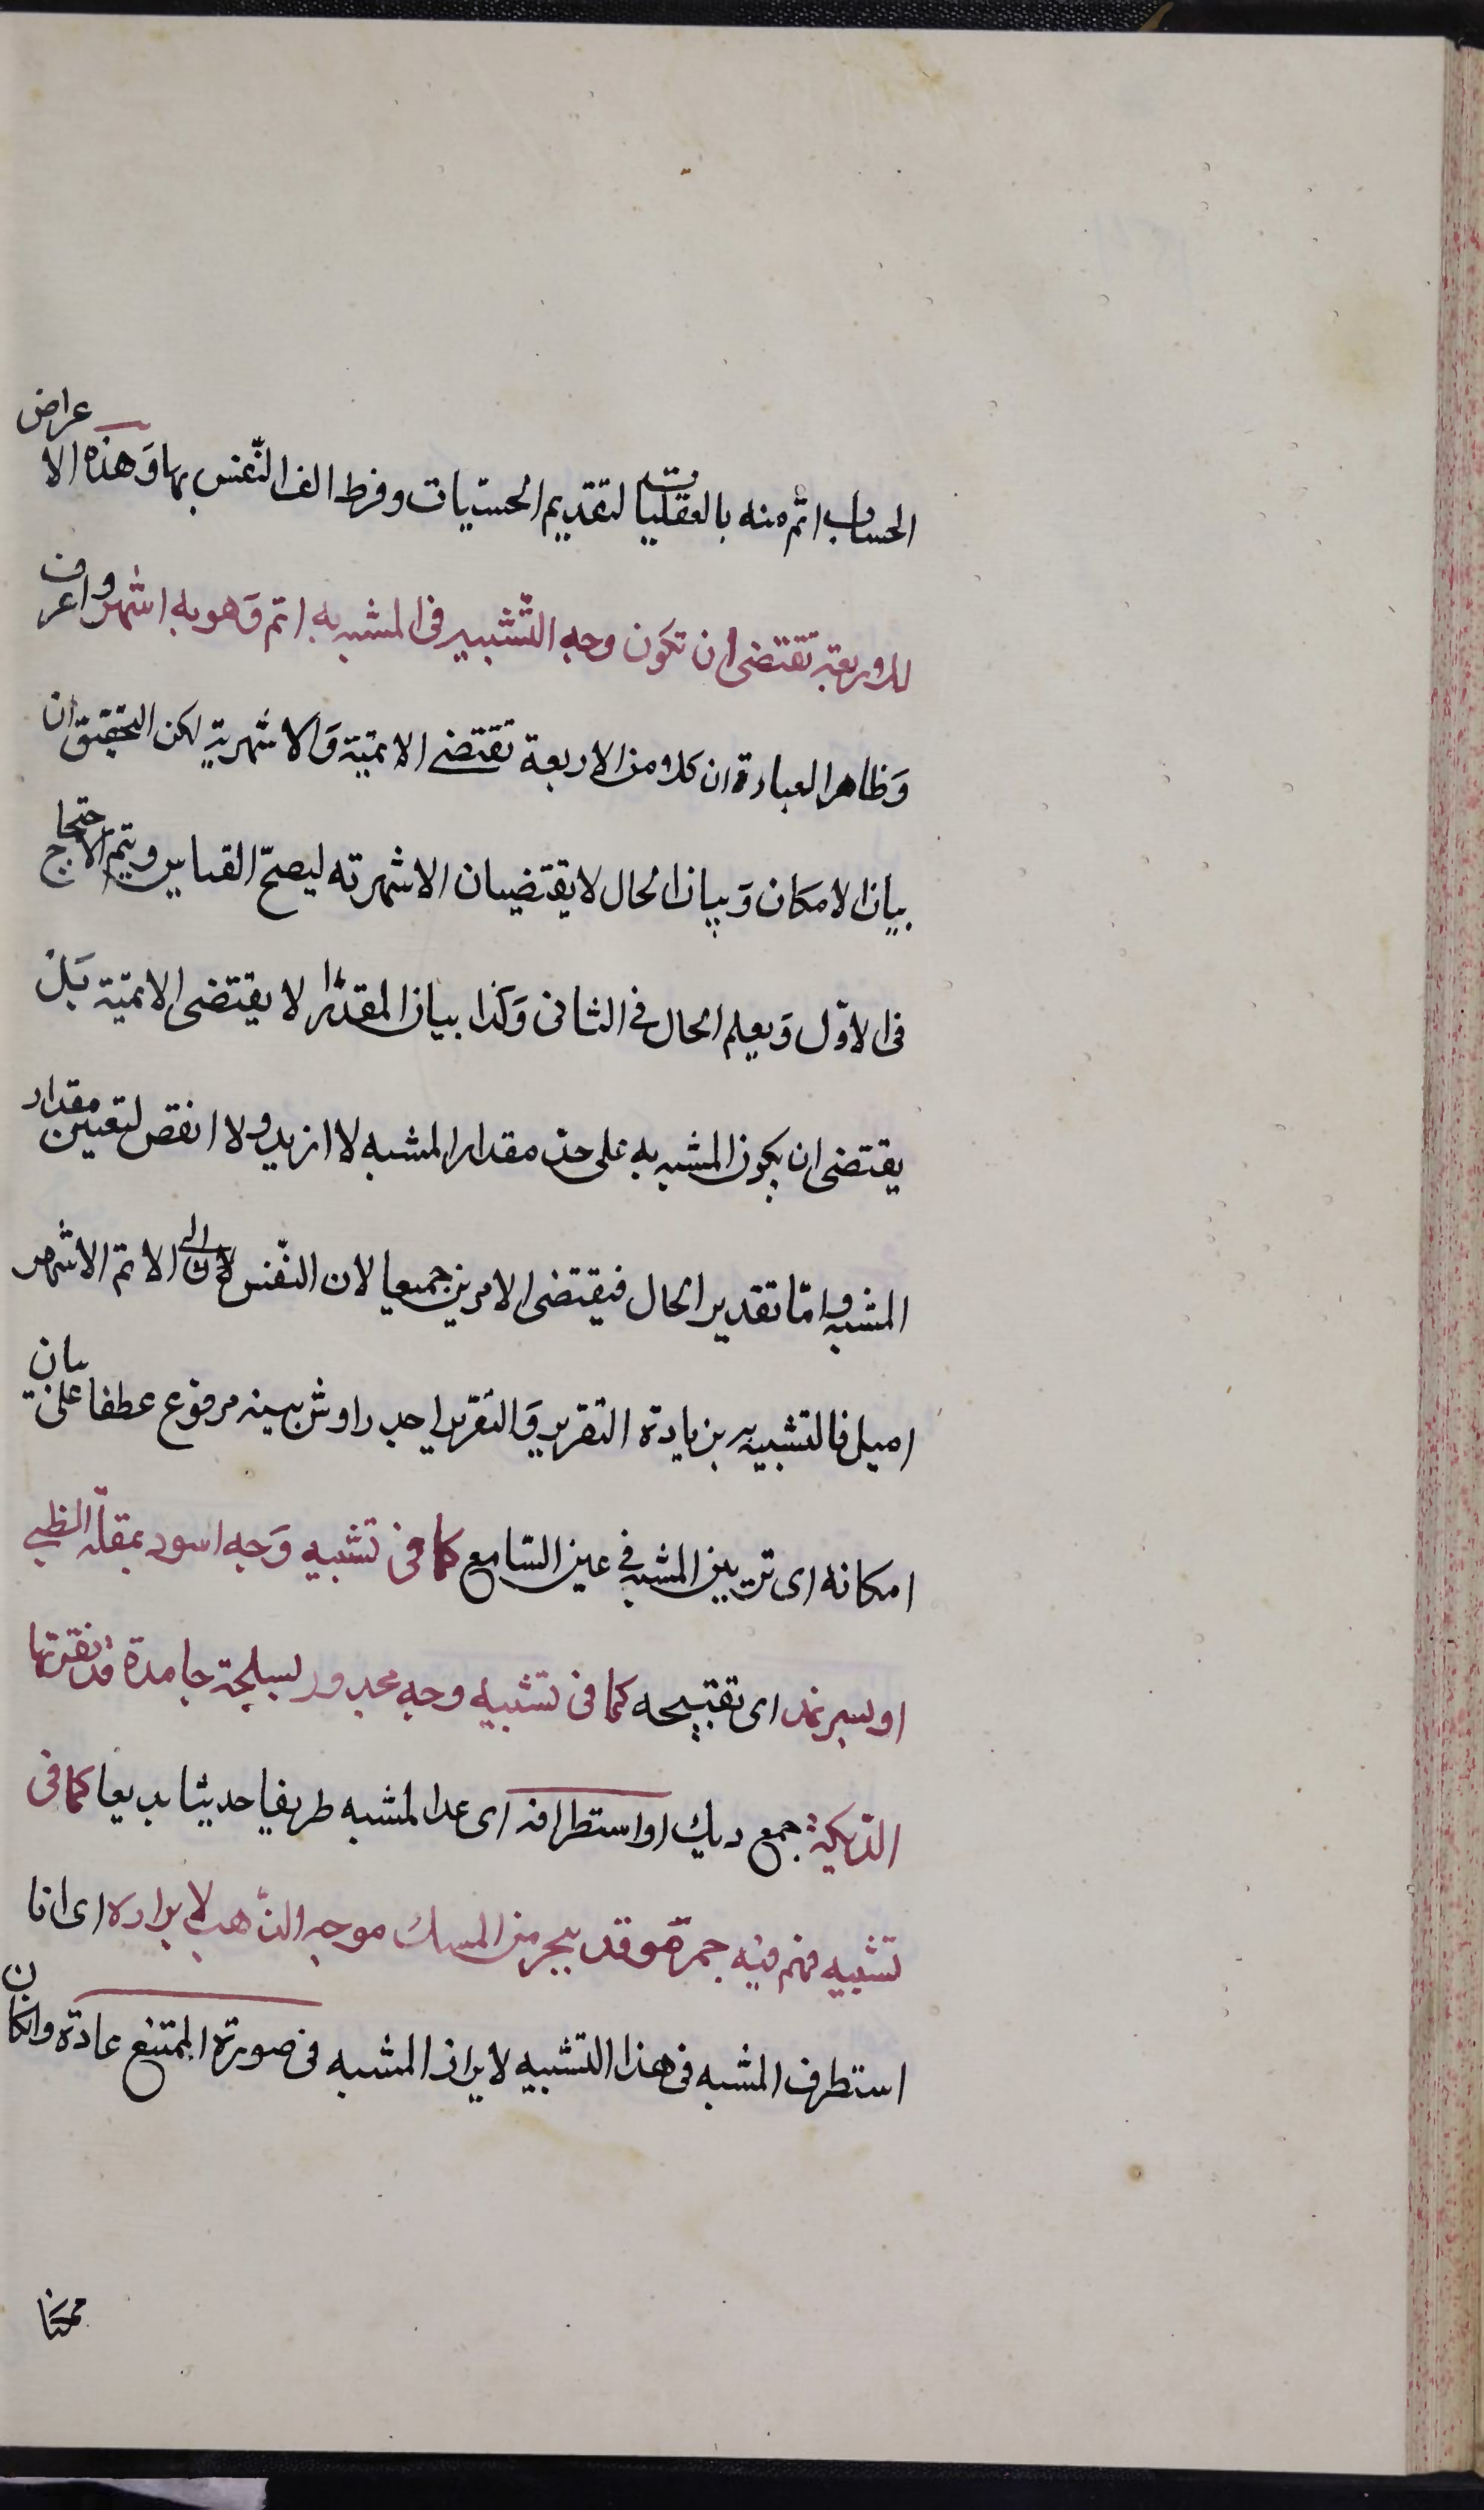 الحساب اتم منه بالعقليات لتقديم الحسّيات وفرط الف النّفس بها وَهذه الاعراض
للاوربعة تقتضى ان تكون وجه التّشبيه فى المشبه به اتم وَهو به اشهر واعرف
وَظاهر العبارة ان كلا من الاربعة تقتضى الاتميّة وَالاشهرية لكن التحقيق ان
بيان الامكان وَبيان الحال لا يقتضيان الا شهرته ليصحّ القياس ويتم الاحتجاج
فى الاوّل وَيعلم الحال فى الثانى وَكذا بيان المقدار لا يقتضى الاتميّة بَلْ
يقتضى ان يكون المشبه به على حدّ مقدار المشبه لا ازيد ولا انقص لتعيين مقدار
المشبه وامّا تقدير الحال فيقتضى الامرين جميعا لان النّفس الى الاتم الاشهر
اميل فالتشبيه بزيادة التقرير وَالتقرير اجدر او تزيينه مرفوع عطفا على بيان
امكانه اى تزيين المشبه فى عين السّامع كما فى تشبيه وَجه اسود بمقلة الظبى
او تقبيحه كما فى تشبيه وجه مجدور بسلحة جامدة قد نقرتها
الدّيكة جمع ديك او استطرافه اى عدا المشبه طريفا حديثا بديعا كما فى
تشبيه فحم فيه جمر موقد ببحر من المسك موجه الذّهب لا براده اى انا
استطرف المشبه فى هذا التشبيه لابراز المشبه فى صورة الممتنع عادة وان كان
ممكنا